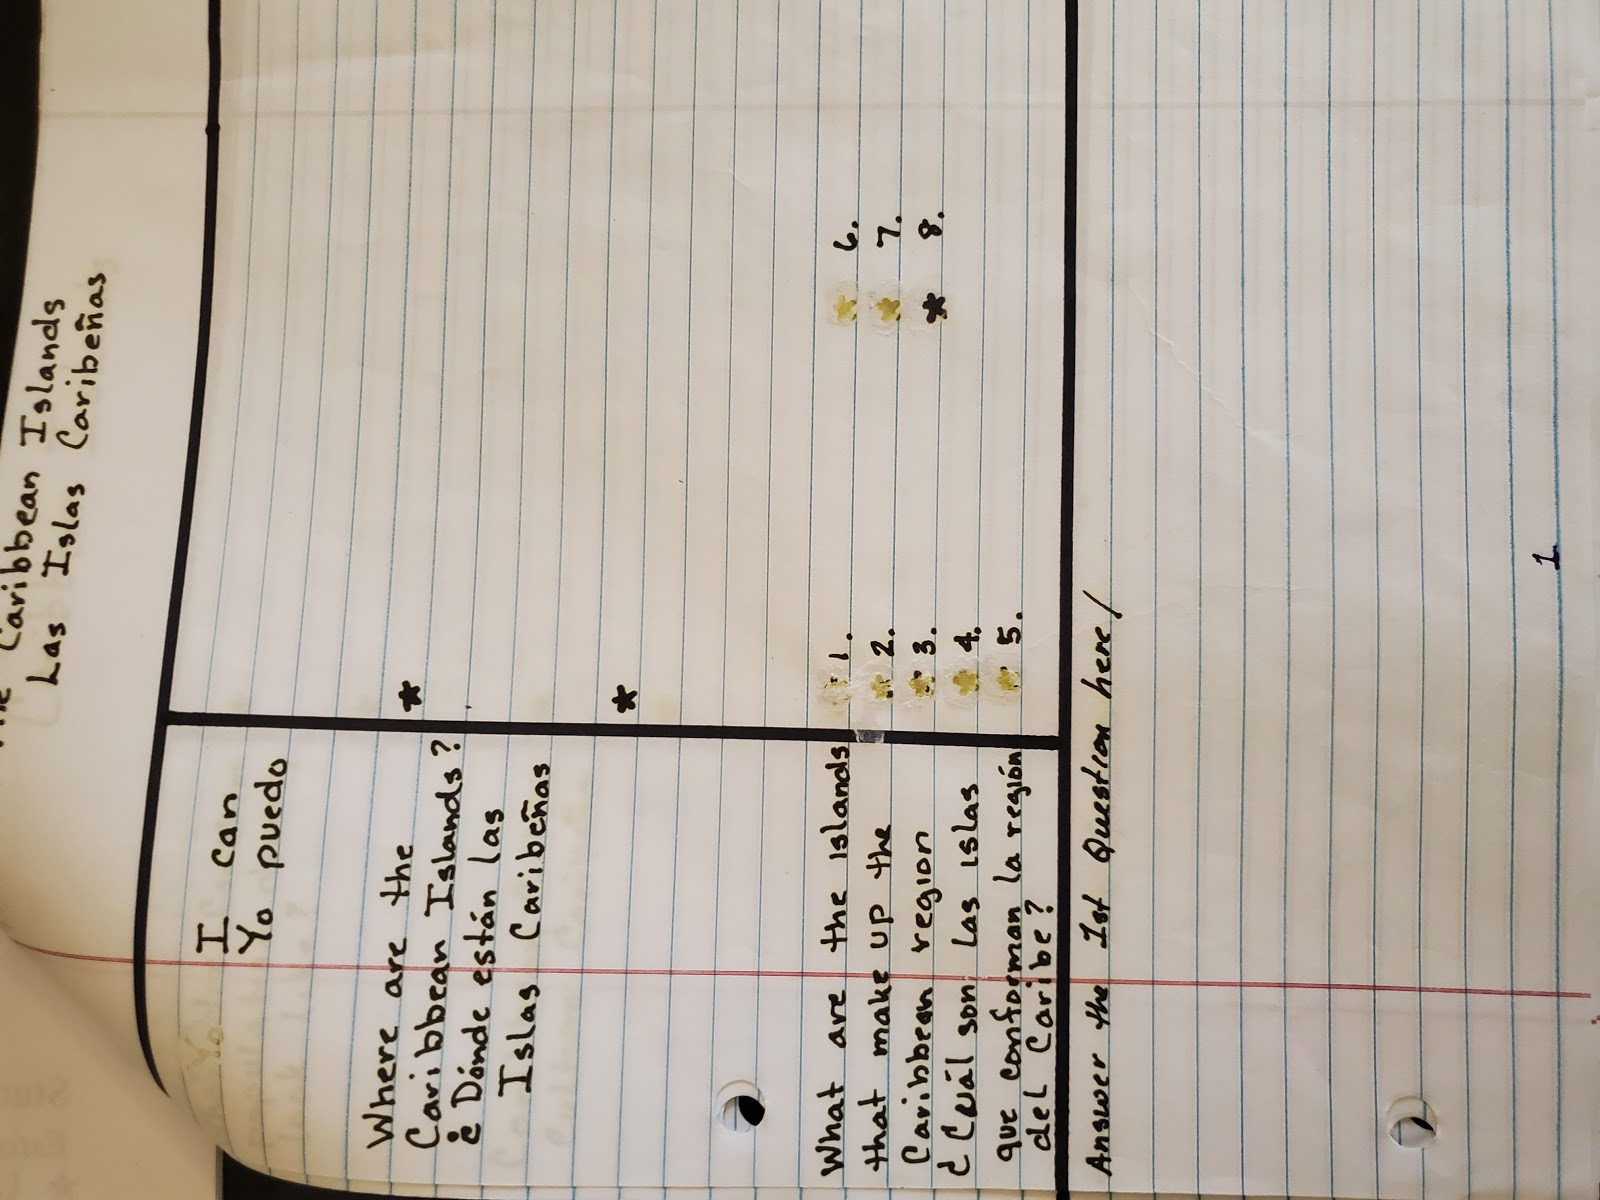 The Caribbean Islands
Las Islas Caribeñas
I can
Yo puedo
Where are the
Caribbean Islands?
¿Dónde están las
Islas Caribeñas
*
*
What are the islands
that make up the
Caribbean region
¿Cuál son las islas
que conforman la región
del Caribe?
1.
2.
3.
4.
5.
6.
7.
* 8.
Answer the 1st Question here!
1